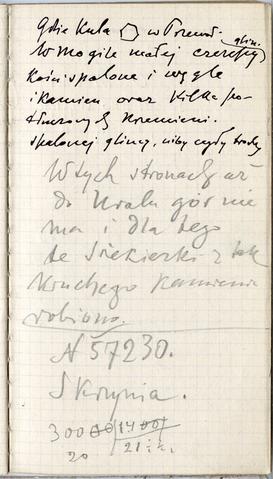 Gdzie Kula w Przeuł.
glin.
W mogile małej czerepy
Kości spalone i węgle
i Kamien oraz Kilka po-
tłuczonych Krzemieni.
spalonej gliny, niby cegły trochę
W tych stronach aż
do Uralu gór nie
ma i dla tego
te Siekierki z tak
Kruchego Kamienia
robiono.
N 57230.
Skrynia.
300 00 | 1400
20 21